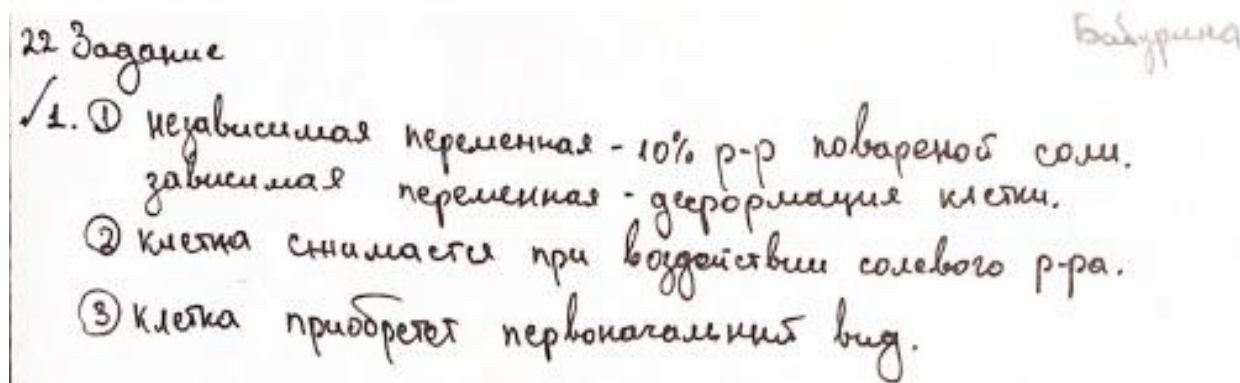 22 Задание
Бабурина
✓1. ① независимая переменная - 10% р-р повареной соли.
зависимая переменная - деформация клетки.
② клетка сжимается при воздействии солевого р-ра.
③ клетка приобретет первоначальный вид.